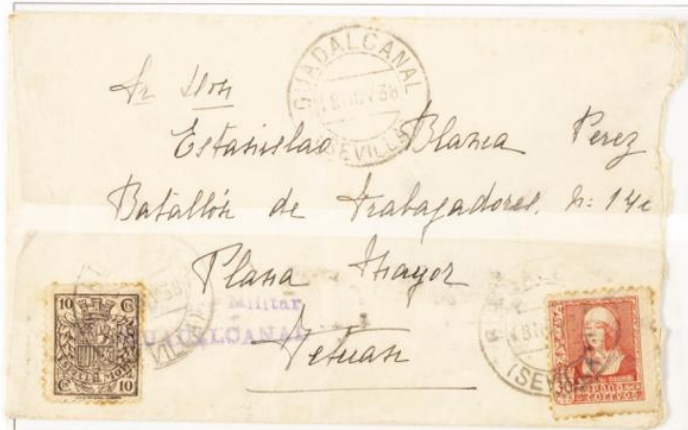 GUADALCANAL
18 NOV 38
(SEVILLA)
Sr Don
Estanislao Blanca Perez
Batallón de Trabajadores. n:
Plana Mayor
Tetuan
Militar
GUADALCANAL
10 Cs Cs 10
ESPAÑA
CORREOS
(SEVILLA)